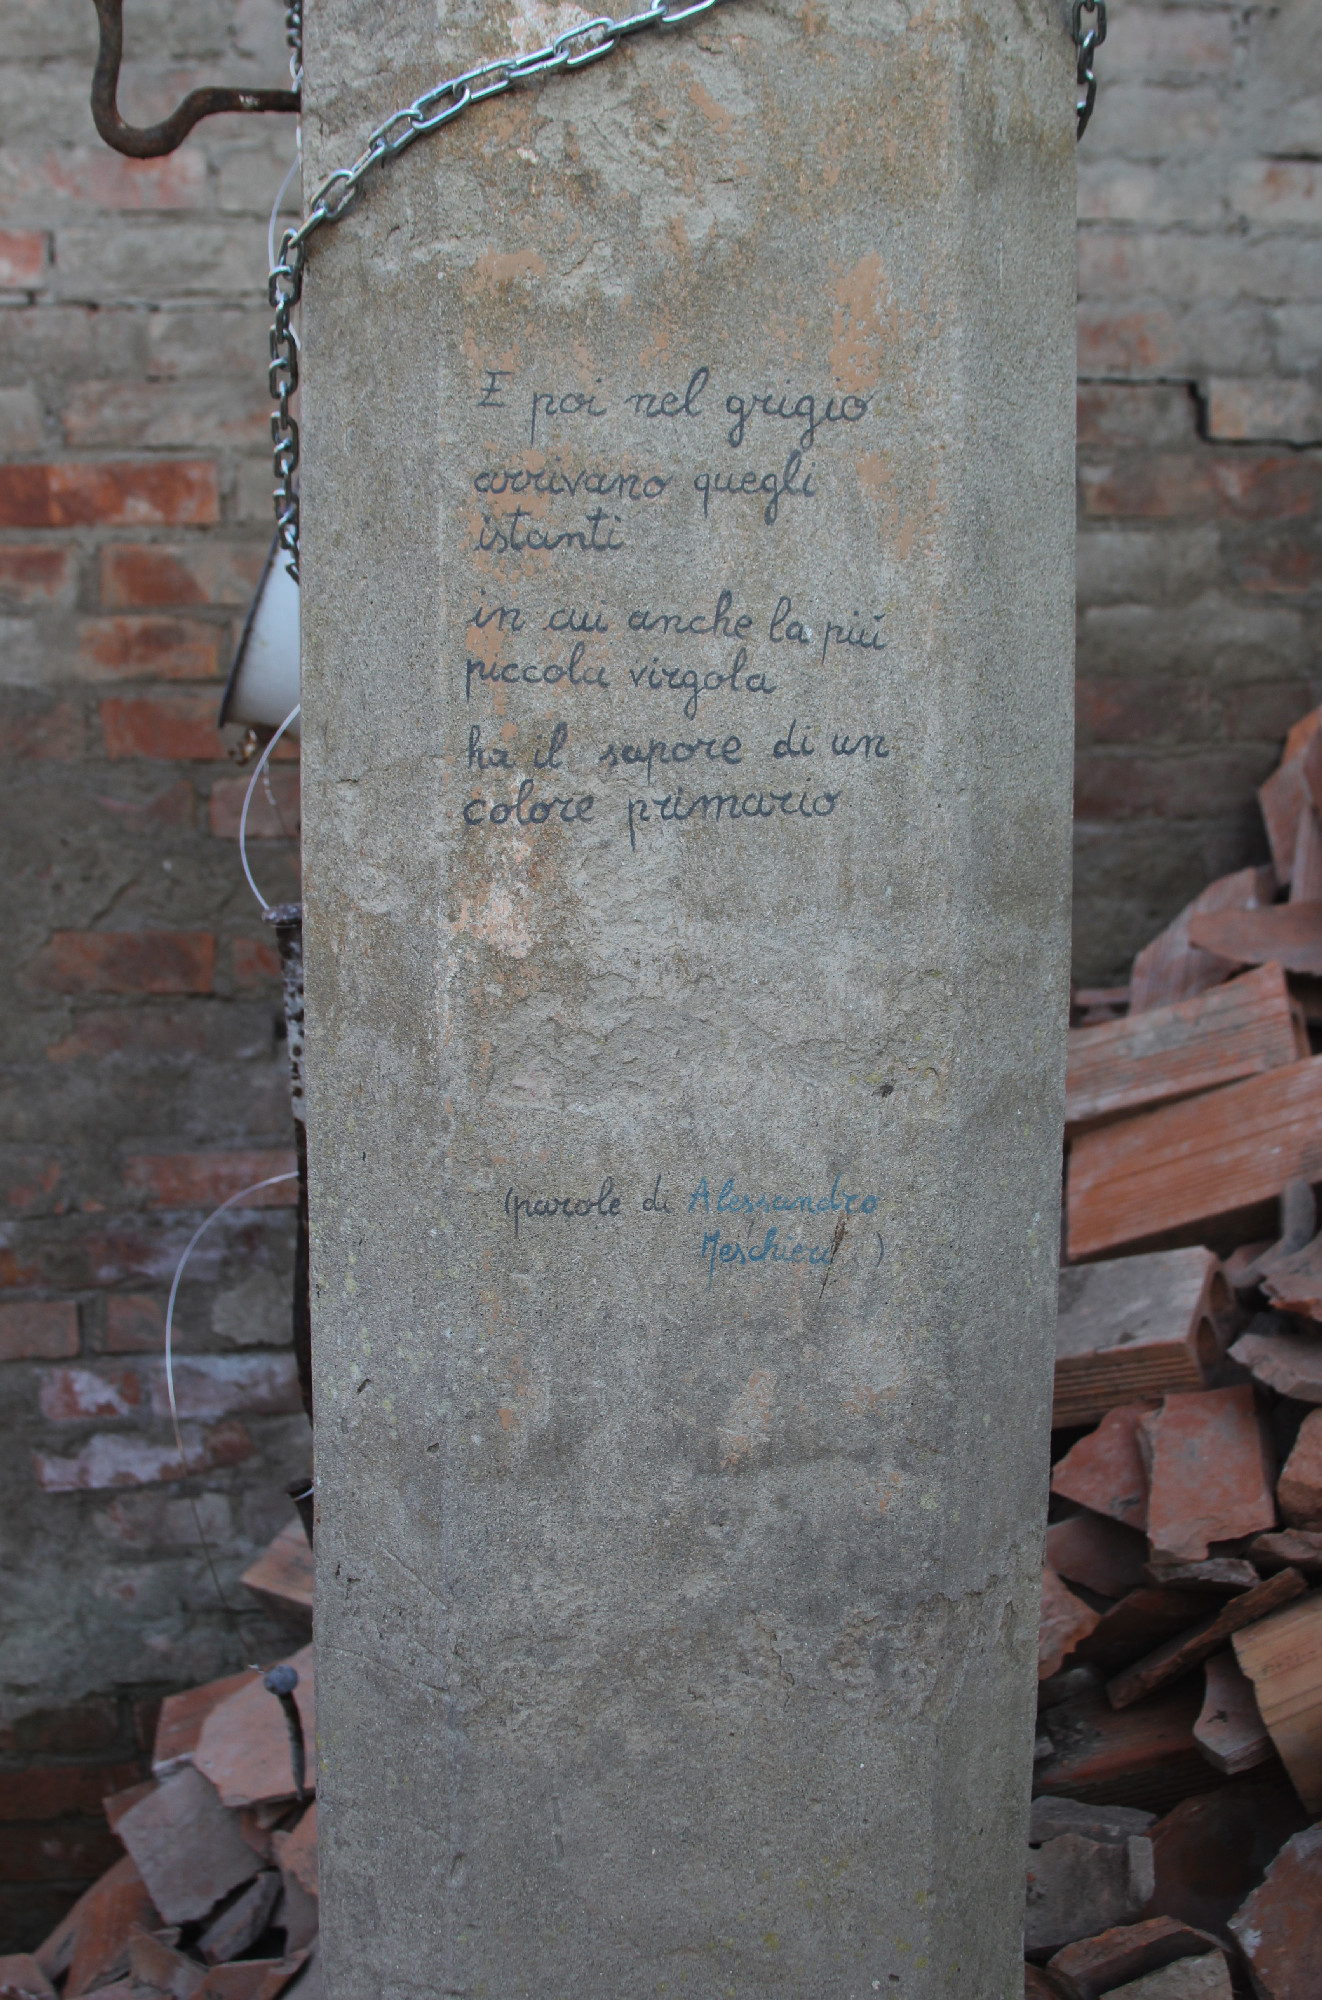 E poi nel grigio
arrivano quegli
istanti
in cui anche la più
piccola virgola
ha il sapore di un
colore primario
(parole di Alessandro
Meschieri )